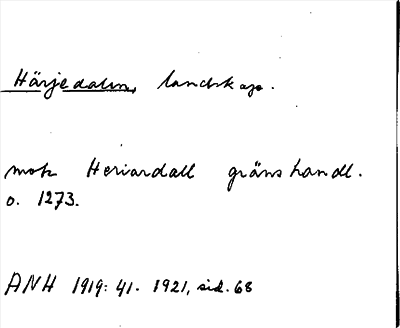 Härjedalen, landskap.
mot Heriardall gränshandl.
o. 1273.
ANH 1919: 41. 1921, sid. 68